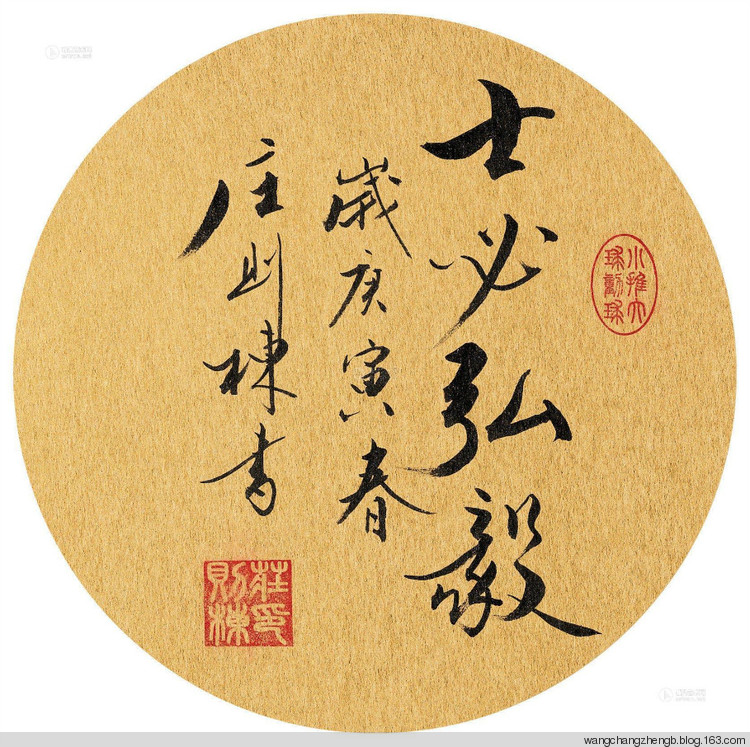 士必弘毅
歲庚寅春
庄则棟書
小球推動大球
莊則棟印
wangchangzhengb.blog.163.com